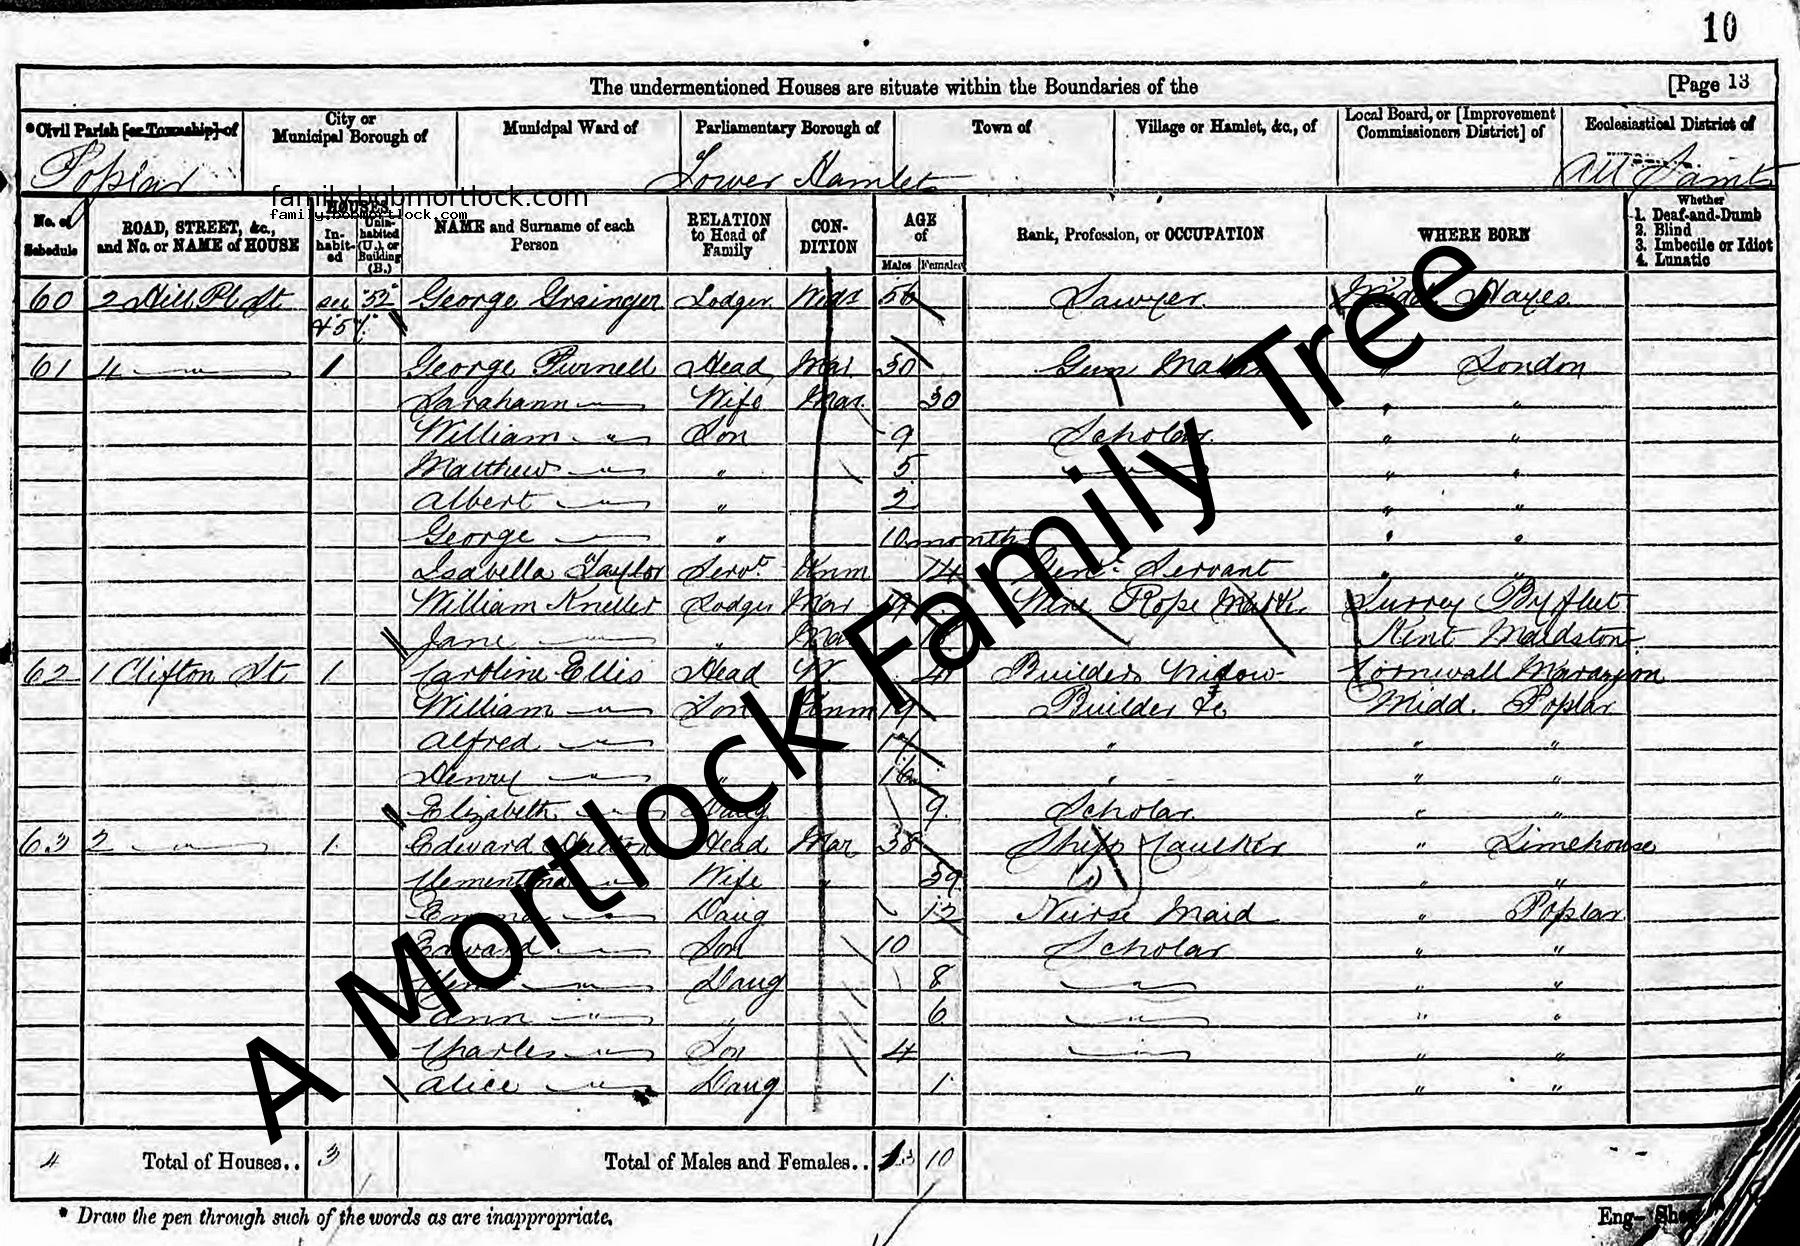 10
The undermentioned Houses are situate within the Boundaries of the [Page 13
*Civil Parish [or Township] of
City or Municipal Borough of
Municipal Ward of
Parliamentary Borough of
Town of
Village or Hamlet, &c., of
Local Board, or [Improvement Commissioners District] of
Ecclesiastical District of
Poplar Tower Hamlets All Saints
family.bobmortlock.com
family.bobmortlock.com
No. of Schedule
ROAD, STREET, &c., and No. or NAME of HOUSE
HOUSES
In-habit-ed
Unin-habited (U.), or Building (B.)
NAME and Surname of each Person
RELATION to Head of Family
CON-DITION
AGE of
Males Females
Rank, Profession, or OCCUPATION
WHERE BORN
Whether
1. Deaf-and-Dumb
2. Blind
3. Imbecile or Idiot
4. Lunatic
60 2 George Grainger Lodger 56 Sawyer Hayes
61 4 1 George Purnell Head Mar 30 Gun London
Sarahann Wife Mar 30 " "
William " Son 9 Scholar " "
Matthew " " 5 " " "
Albert " " 2 " "
George " 10 months " "
Isabella Taylor Servt. Unm 14 Genl. Servant " "
William Kneller Lodger Mar 19 Wire Rope Maker Surrey Byfleet
Jane " " Mar Kent Maidstone
62 1 Clifton St 1 Caroline Ellis Head W. Builders Widow Cornwall
William " Son Unm 19 Builder &c Midd. Poplar
Alfred " " " "
Henry " " 16 " " "
Elizabeth " Daug 9 Scholar " "
63 2 1 Edward Head Mar 38 Ship Caulker " Limehouse
Clementina " Wife " 39 " "
Emma " Daug 12 Nurse Maid " Poplar
Edward " Son 10 Scholar " "
" Daug 8 " " "
Ann " " 6 " " "
Charles " Son 4 " " "
Alice " Daug 1 " "
A Mortlock Family Tree
4 Total of Houses.. 3 Total of Males and Females.. 13 10
* Draw the pen through such of the words as are inappropriate.
Eng-